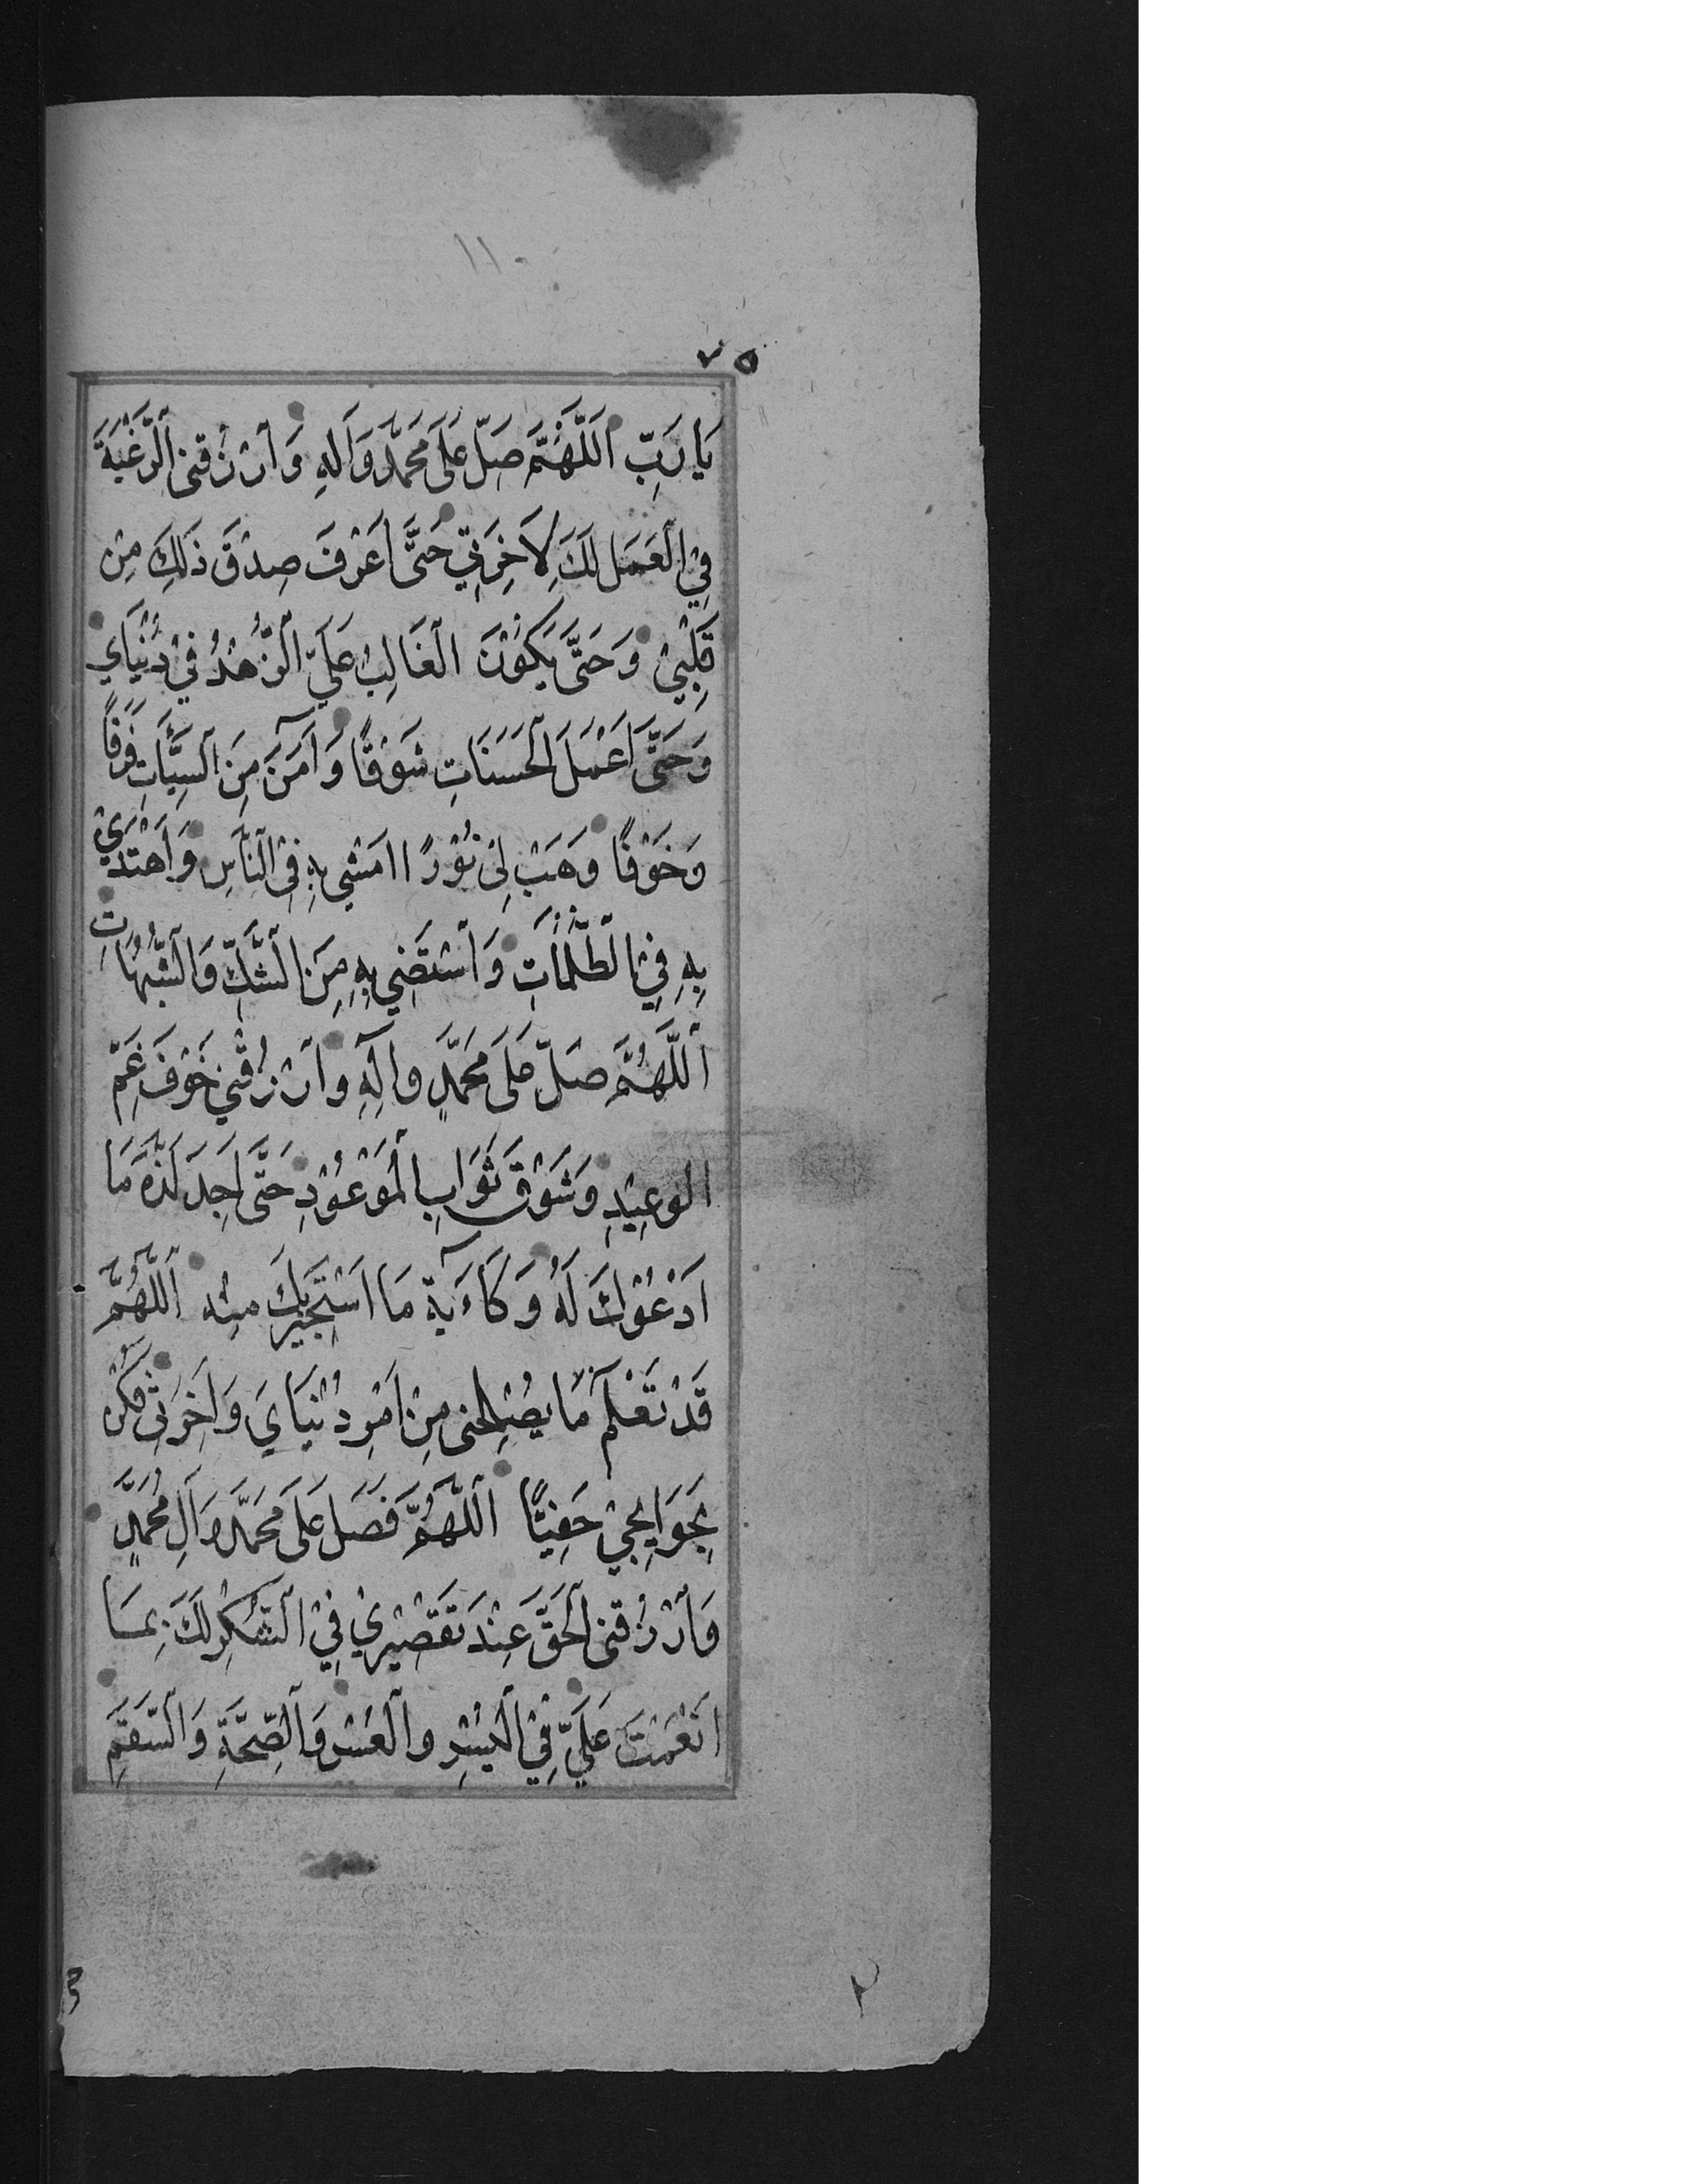 ١١٠
٧٥
يَا رَبِّ اَللَّهُمَّ صَلِّ عَلَى مُحَمَّدٍ وَآلِهِ وَارْزُقْنِى الرَّغْبَةَ
فِي الْعَمَلِ لَكَ لِآخِرَتِي حَتَّى أَعْرِفَ صِدْقَ ذَلِكَ مِنْ
قَلْبِيْ وَحَتَّى يَكُوْنَ الْغَالِبُ عَلَيَّ الزُّهْدُ فِيْ دُنْيَايَ
وَحَتَّى أَعْمَلَ الْحَسَنَاتِ شَوْقًا وَآمَنَ مِنَ السَّيِّئَاتِ فَرَقًا
وَخَوْفًا وَهَبْ لِىْ نُوْرًا امَشِي بِهِ فِى النَّاسِ وَاَهْتَدِيْ
بِهِ فِي الظُّلُمَاتِ وَاَسْتَضِي بِهِ مِنَ الشَّكِّ وَالشُّبُهَاتِ
اَللَّهُمَّ صَلِّ عَلَى مُحَمَّدٍ وآلِهِ وارْزُقْنِي خَوْفَ غَمِّ
الوعِيْدِ وَشَوْقَ ثَوَابِ الْمَوْعُوْدِ حَتَّى اَجِدَ لَذَّةَ مَا
اَدْعُوْكَ لَهُ وَكَآءَبَةَ مَا اَسْتَجِيْرُبِكَ مِنْه اَللَّهُمَّ
قَدْ تَعْلَمُ مَا يُصْلِحُنى مِنْ اَمْرِ دُنْيَايَ وَاَخِرَتِى فَكُنْ
بِحَوَايِجِيْ حَفِيًّا اَللَّهُمَّ فَصَلِّ عَلَى مُحَمَّدٍ وَآلِ مُحَمَّدٍ
وَارْزُقْنِى الْحَقَّ عِنْدَ تَقْصِيْرِيْ فِيْ الشُّكْرِ لَكَ بِمَا
اَنْعَمْتَ عَلَيَّ فِيْ الْيُسْرِ والْعُسْرِ وَالصِّحَّةِ وَالسَّقَمِ